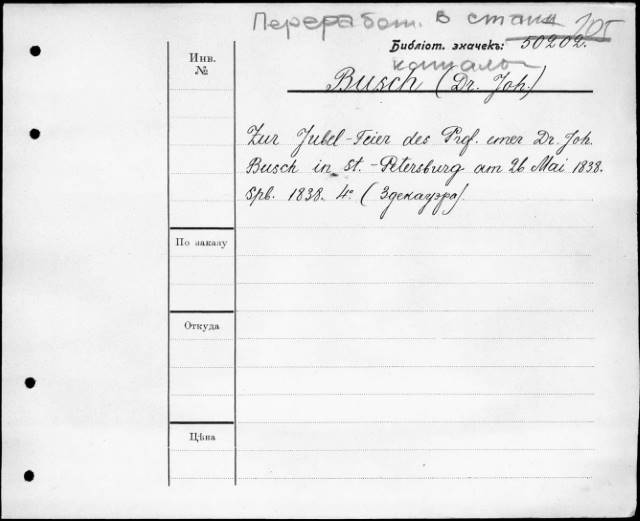 Переработ. в стан 105
Библіот. значекъ: 50202.
Инв. №
Busch (Dr. Joh.)
Zur Jubel-Feier des Prof. emer Dr. Joh.
Busch in St.-Petersburg am 26 Mai 1838.
Spb. 1838. 4º (Здекауэра).
По заказу
Откуда
Цѣна